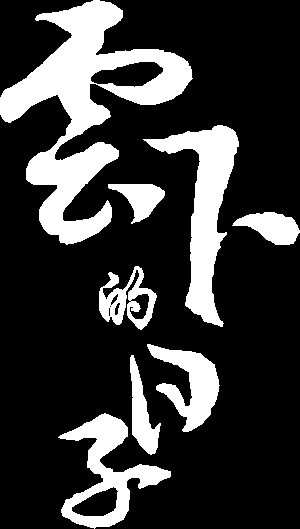 雲下的日子